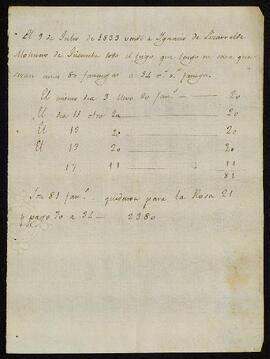 El 9 de Julio de 1833 vendi a Ygnacio de Lizarralde
Molinero de todo el trigo que tengo en casa que
seran unas 80 fanegas a 34 r.s fanega
El mismo dia 9 llevo 20 fan.s 20
El dia 11 otro 20
El 12 20
El 13 20
17 11 11
81
Son 81 fan.s quedaron para la Rosa 21
y pago 70 a 34 2380